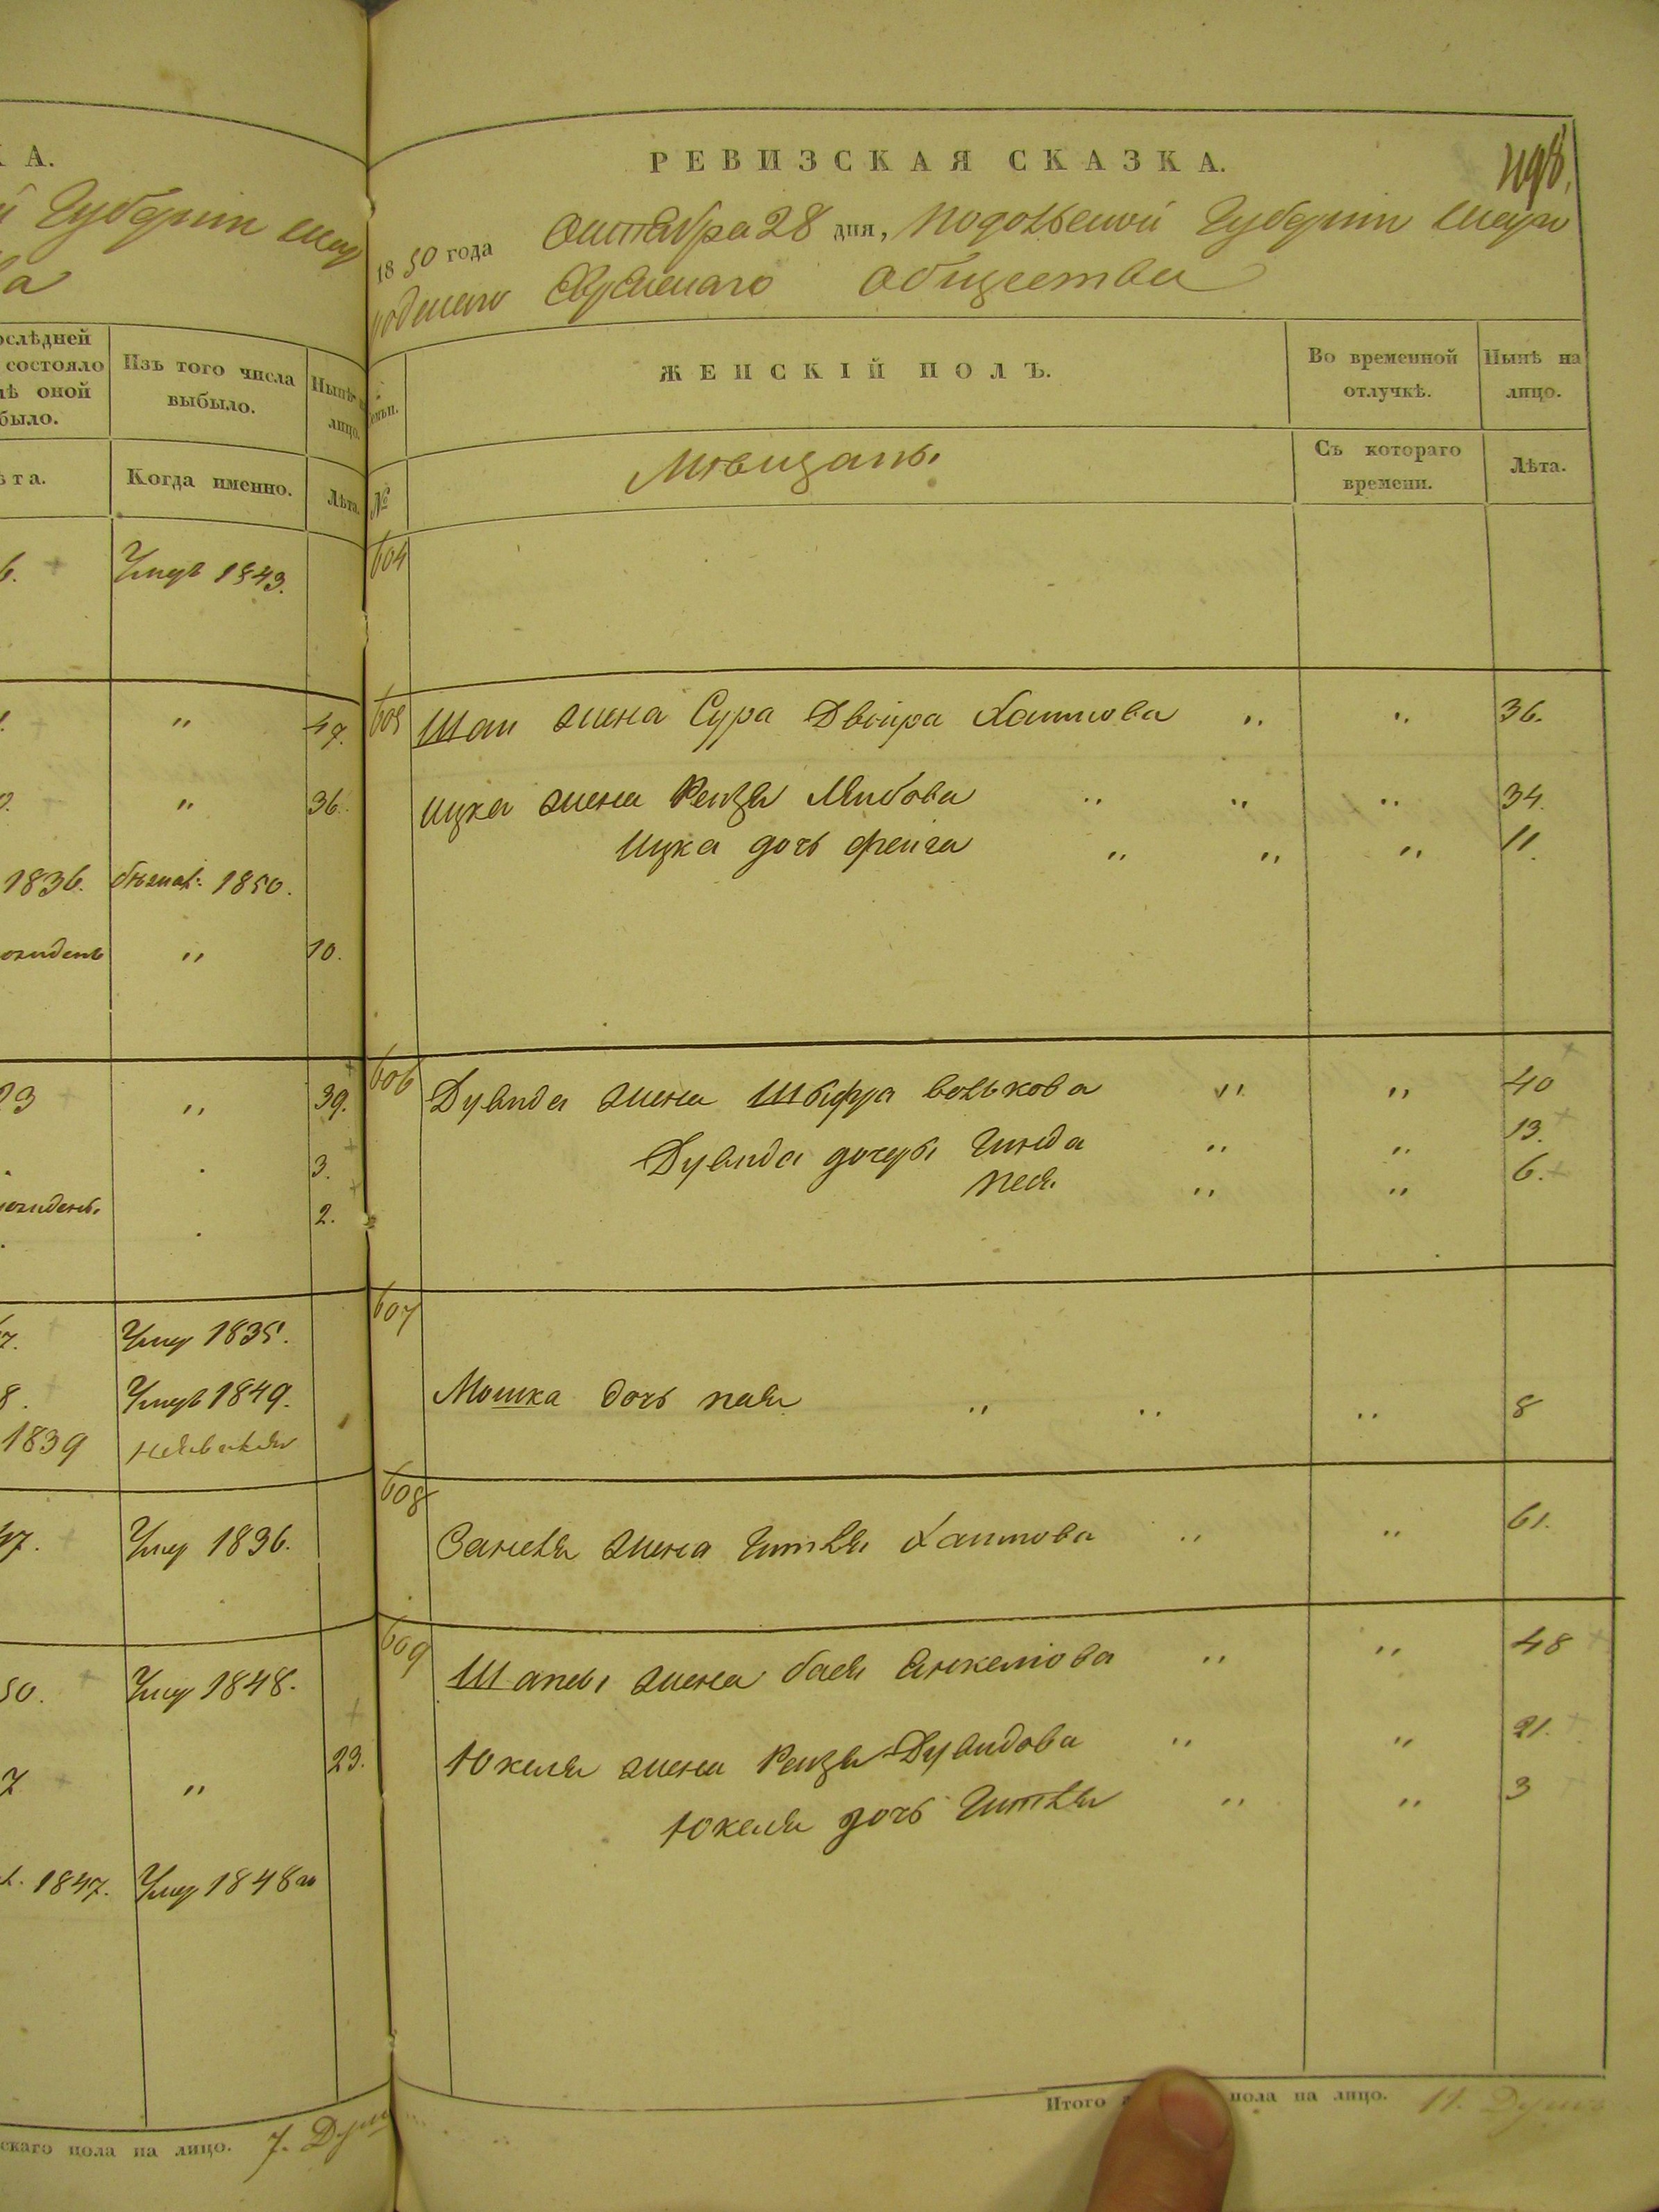 К А.
й Губерніи Шар
ва
ослѣдней
состояло
лѣ оной
было.
Изъ того числа
выбыло.
Нынѣ
лицо.
ѣта.
Когда именно.
Лѣта.
6. Умеръ 1843.
" 47.
" 36.
1836. 1850.
" 10.
23 " 39.
3.
2.
7. Умер 1835.
8. Умеръ 1849.
1839
47. Умер 1836.
50. Умер 1848.
7 " 23.
1847. Умер 1848го
скаго пола на лицо. 7. Душ
РЕВИЗСКАЯ СКАЗКА.
1850 года Октября 28 дня, Подольской Губерніи Шаро
родскаго Еврейскаго Общества
ЖЕНСКІЙ ПОЛЪ.
Во временной
отлучкѣ.
Нынѣ на
лицо.
№
Мѣщаны
Съ котораго
времени.
Лѣта.
604
605 Шаи жена Сура Двойра Хаимова " " 36.
Ицка жена Рейзя Лейбова " " " 34.
Ицка дочь Фейга " " " 11.
606 Дувида жена Шифра Волькова " " 40
Дувида дочери Гинда " " 13.
Песя " " 6.
607
Мошка дочь Пая " " " 8
608
жена Гитля Хаимова " " 61.
609
жена Бася Янкелiова " " 48
Юкеля жена Рейзя Дувидова " " 21.
Юкеля дочь Гитля " " 3
Итого пола на лицо. 11. Душъ